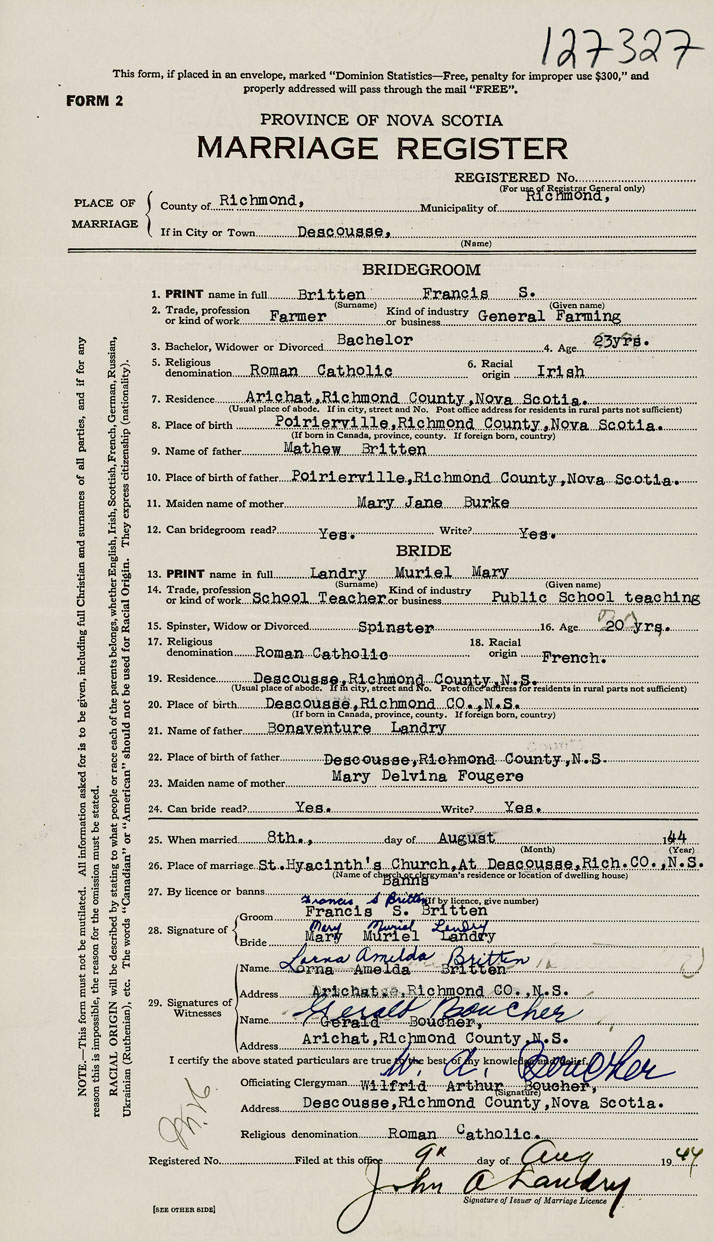 127327
This form, if placed in an envelope, marked "Dominion Statistics—Free, penalty for improper use $300," and
properly addressed will pass through the mail "FREE".
FORM 2
PROVINCE OF NOVA SCOTIA
MARRIAGE REGISTER
REGISTERED No.
(For use of Registrar General only)
PLACE OF MARRIAGE
County of Richmond, Municipality of Richmond,
If in City or Town Descousse,
(Name)
BRIDEGROOM
1. PRINT name in full Britten Francis S.
(Surname) (Given name)
2. Trade, profession or kind of work Farmer Kind of industry or business General Farming
3. Bachelor, Widower or Divorced Bachelor 4. Age 23yrs.
5. Religious denomination Roman Catholic 6. Racial origin Irish
7. Residence Arichat,Richmond County,Nova Scotia.
(Usual place of abode. If in city, street and No. Post office address for residents in rural parts not sufficient)
8. Place of birth Poirierville,Richmond County,Nova Scotia.
(If born in Canada, province, county. If foreign born, country)
9. Name of father Mathew Britten
10. Place of birth of father Poirierville,Richmond County,Nova Scotia.
11. Maiden name of mother Mary Jane Burke
12. Can bridegroom read? Yes. Write? Yes.
BRIDE
13. PRINT name in full Landry Muriel Mary
(Surname) (Given name)
14. Trade, profession or kind of work School Teacher Kind of industry or business Public School teaching
15. Spinster, Widow or Divorced Spinster 16. Age 20 yrs.
17. Religious denomination Roman Catholic 18. Racial origin French.
19. Residence Descousse,Richmond County,N.S.
(Usual place of abode. If in city, street and No. Post office address for residents in rural parts not sufficient)
20. Place of birth Descousse,Richmond CO.,N.S.
(If born in Canada, province, county. If foreign born, country)
21. Name of father Bonaventure Landry
22. Place of birth of father Descousse,Richmond County,N.S.
23. Maiden name of mother Mary Delvina Fougere
24. Can bride read? Yes. Write? Yes.
25. When married 8th., day of August 1944
(Month) (Year)
26. Place of marriage St.Hyacinth's Church,At Descousse,Rich.CO.,N.S.
(Name of church or clergyman's residence or location of dwelling house)
27. By licence or banns Banns (If by licence, give number)
Francis S Britten
28. Signature of Groom Francis S. Britten
Mary Muriel Landry
Bride Mary Muriel Landry
Lorna Amelda Britten
29. Signatures of Witnesses Name Lorna Amelda Britten
Address Arichat,Richmond CO.,N.S.
Gerald Boucher
Name Gerald Boucher,
Address Arichat,Richmond County,N.S.
I certify the above stated particulars are true to the best of my knowledge and belief.
W. A. Boucher
Officiating Clergyman Wilfrid Arthur Boucher,
(Signature)
Address Descousse,Richmond County,Nova Scotia.
Religious denomination Roman Catholic.
Registered No. Filed at this office 9th day of Aug 1944
John A Landry
Signature of Issuer of Marriage Licence
[SEE OTHER SIDE]
NOTE.—This form must not be mutilated. All information asked for is to be given, including full Christian and surnames of all parties, and if for any
reason this is impossible, the reason for the omission must be stated.
RACIAL ORIGIN will be described by stating to what people or race each of the parents belongs, whether English, Irish, Scottish, French, German, Russian,
Ukrainian (Ruthenian), etc. The words "Canadian" or "American" should not be used for Racial Origin. They express citizenship (nationality).